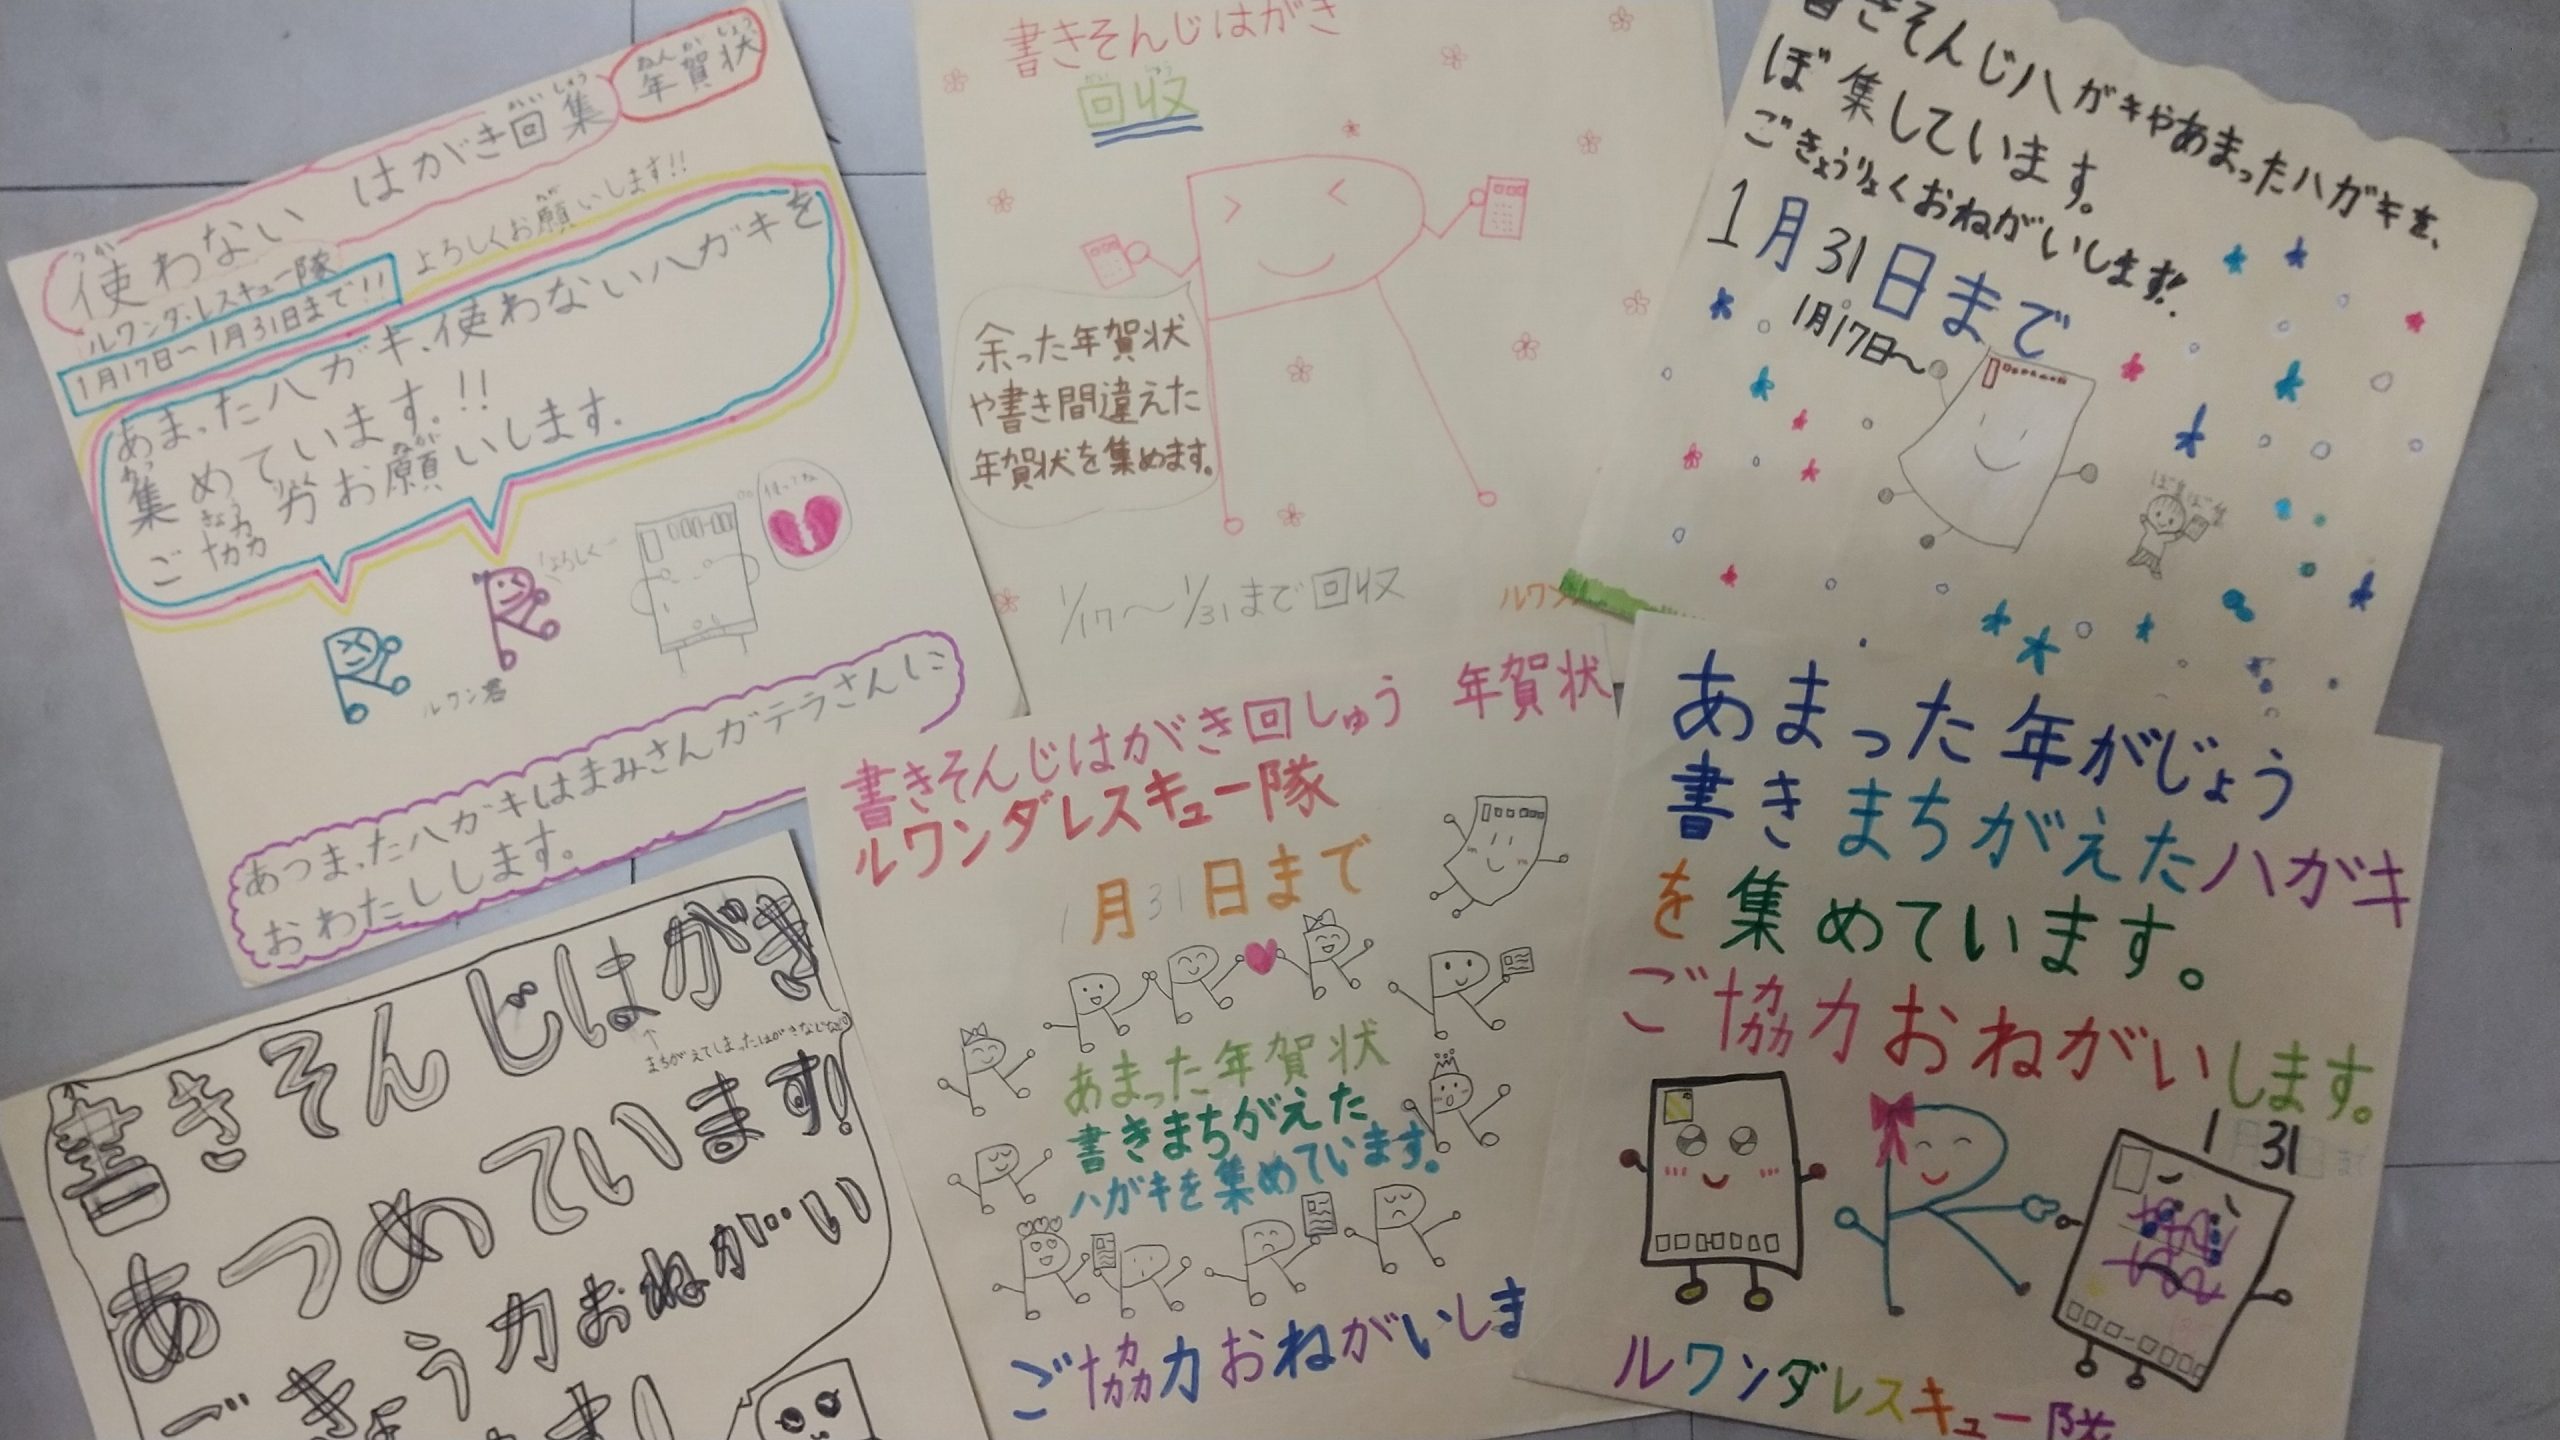 使わない はがき回集 年賀状
つか かいしゅう ねんがじょう
ルワンダレスキュー隊
よろしくお願いします!!
1月17日〜1月31日まで!!
あまったハガキ、使わないハガキを
集めています。!!
ご協力お願いします。
よろしくー
使ってね
ルワン君
あつまったハガキはまみさんガテラさんに
おわたしします。
書きそんじはがき
回収
かい しゅう
余った年賀状
や書き間違えた
年賀状を集めます。
1/17〜1/31まで回収
ルワン
書きそんじハガキやあまったハガキを、
ぼ集しています。
ごきょうりょくおねがいします!
1月31日まで
1月17日〜
ぼ集ぼ集
書きそんじはがき
まちがえてしまったはがきなど
あつめています!
ごきょう力おねがい
書きそんじはがき回しゅう 年賀状
ルワンダレスキュー隊
1月31日まで
あまった年賀状
書きまちがえた
ハガキを集めています。
ご協力おねがいしま
あまった年がじょう
書きまちがえたハガキ
を集めています。
ご協力おねがいします。
1 31
ルワンダレスキュー隊